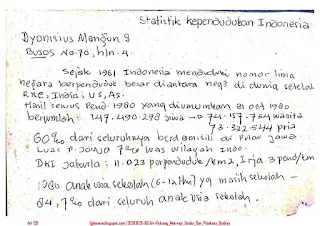 Statistik kependudukan Indonesia
Dyonisius Mangun S
Busos No. 76, hln. 4.
Sejak 1961 Indonesia menduduki nomor lima
negara berpenduduk besar diantara neg2 di dunia setelah
RRC, India, US, AS.
Hasil sensus Pend. 1980 yang diumumkan 31 Oct 1980
berjumlah : 147.490.298 jiwa → 74.157.754 wanita
73.322.544 pria
60% dari seluruhnya berdomisili di Pulau Jawa
Luas P. Jawa 7% luas wilayah Indo.
DKI Jakarta : 11.023 per penduduk/km2, Irja 3 pend/km
1980 anak usia sekolah (6-12 thn) yg masih sekolah -
84,7% dari seluruh usia sekolah.